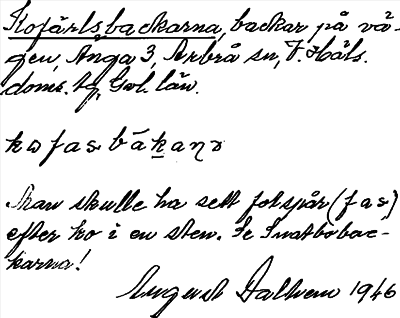 Kofärlsbackarna, backar på vä-
gen, Änga 3, Arbrå sn, V. Häls.
doms. tg, Gvl. län.
kofasbákana
Man skulle ha sett fotspår (fas)
efter ko i en sten. Se Snatbobac-
karna!
August Dalhem 1946